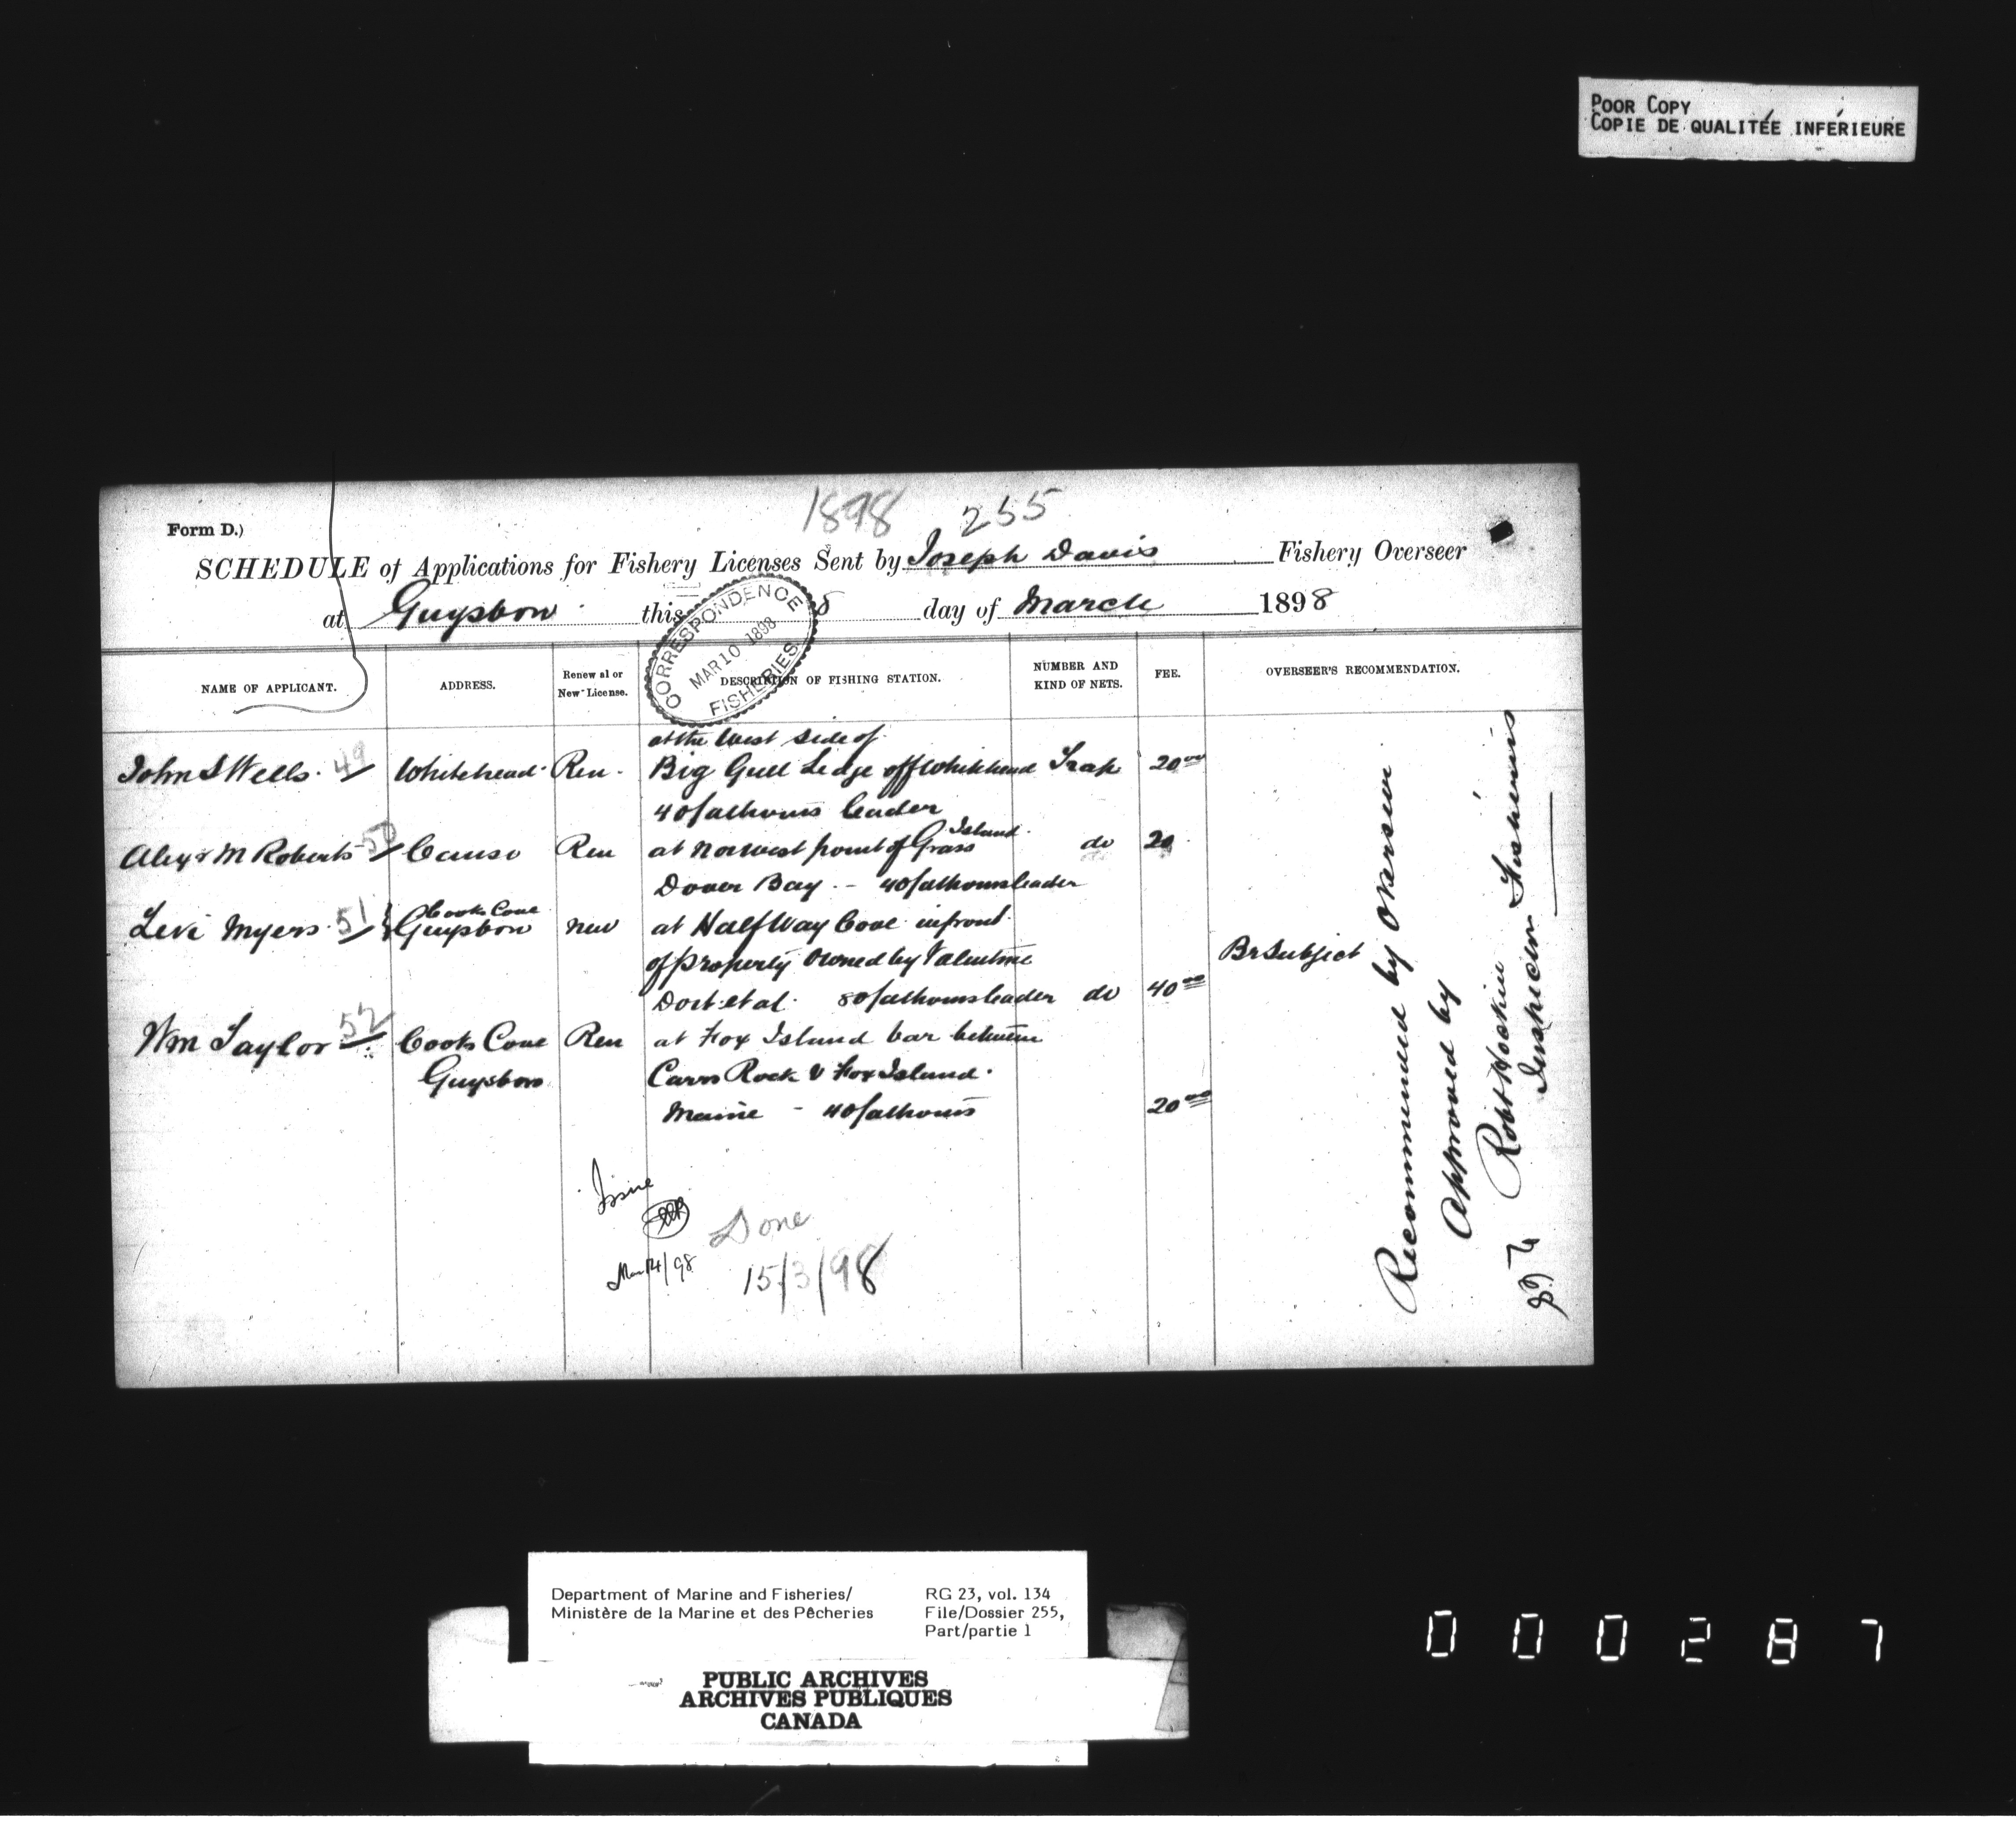 POOR COPY
COPIE DE QUALITÉE INFÉRIEURE
1898 255
Form D.)
SCHEDULE of Applications for Fishery Licenses Sent by Joseph Davis Fishery Overseer
at Guysboro this 8 day of March 1898
CORRESPONDENCE
MAR 10 1898
FISHERIES
NAME OF APPLICANT. ADDRESS. Renewal or New License. DESCRIPTION OF FISHING STATION. NUMBER AND KIND OF NETS. FEE. OVERSEER'S RECOMMENDATION.
at the West Side of
John S Wells. 49 Whitehead Ren. Big Gull Ledge off Whitehead Trap 20 00
40 fathoms leader
Alexr M Roberts 50 Canso Ren at Norwest point of Grass Island do 20
Dover Bay - 40 fathoms leader
Levi Myers 51 Cooks Cove Guysboro new at Half Way Cove infront
of property owned by Valentine
Dort et al. 80 fathoms leader do 40 00 Br Subject
Wm Taylor 52 Cooks Cove Ren at Fox Island bar between
Guysboro Carrs Rock & Fox Island.
Maine - 40 fathoms 20 00
Recommended by Overseer
Approved by
Robt Hockin
Inspector Fisheries
Issue
Mar 14/98
Done
15/3/98
Department of Marine and Fisheries/
Ministère de la Marine et des Pêcheries
RG 23, vol. 134
File/Dossier 255,
Part/partie 1
PUBLIC ARCHIVES
ARCHIVES PUBLIQUES
CANADA
000287